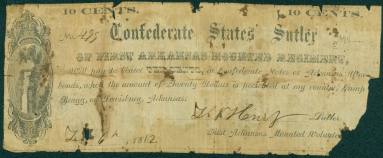 10 CENTS. 10 CENTS.
Confederate States Sutler
OF FIRST ARKANSAS MOUNTED REGIMENT,
Will pay to Bearer TEN CENTS, in Confederate Notes or Arkansas War
bonds, when the amount of Twenty Dollars is presented at my counter, Camp
Bragg, or Lewisburg, Arkansas.
Sutler
1862
First Arkansas Mounted Volunteers